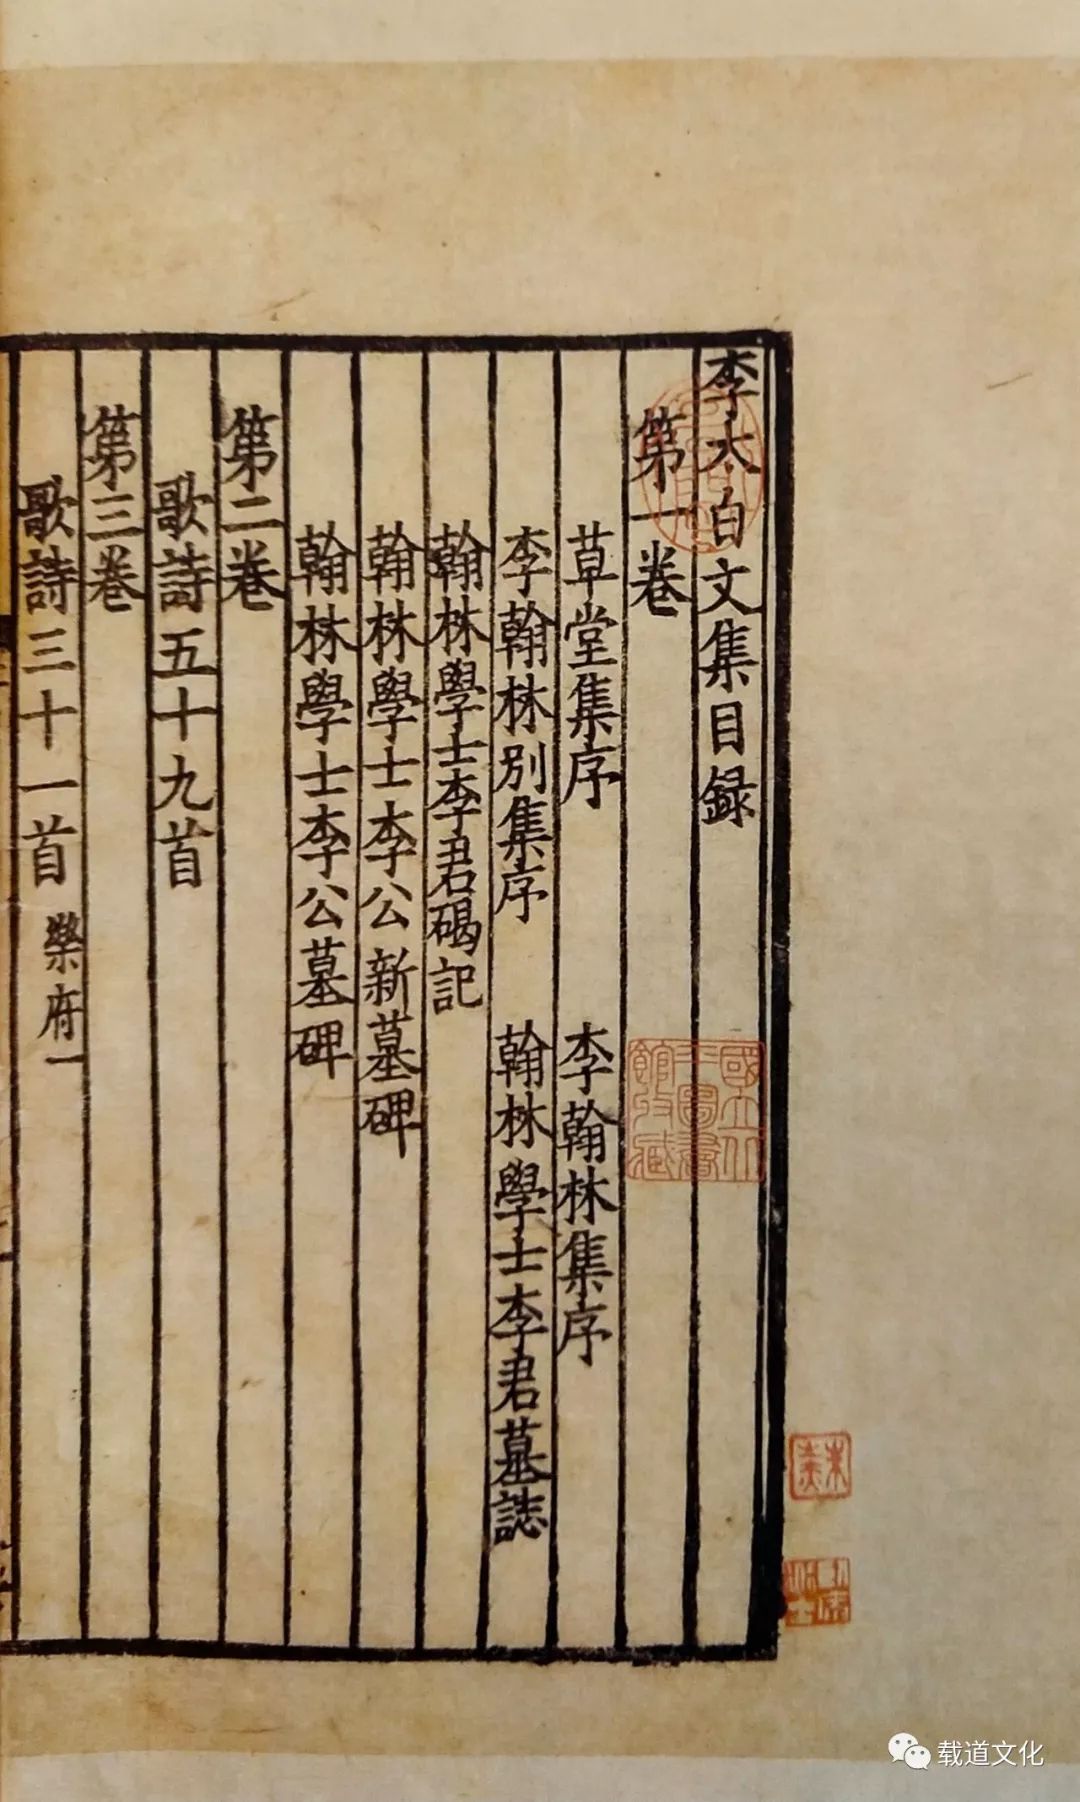 李太白文集目録
第一卷
草堂集序　李翰林集序
李翰林別集序　翰林學士李君墓誌
翰林學士李君碣記
翰林學士李公新墓碑
翰林學士李公墓碑
第二卷
歌詩五十九首
第三卷
歌詩三十一首 樂府一
國立北
平圖書
館收藏
载道文化